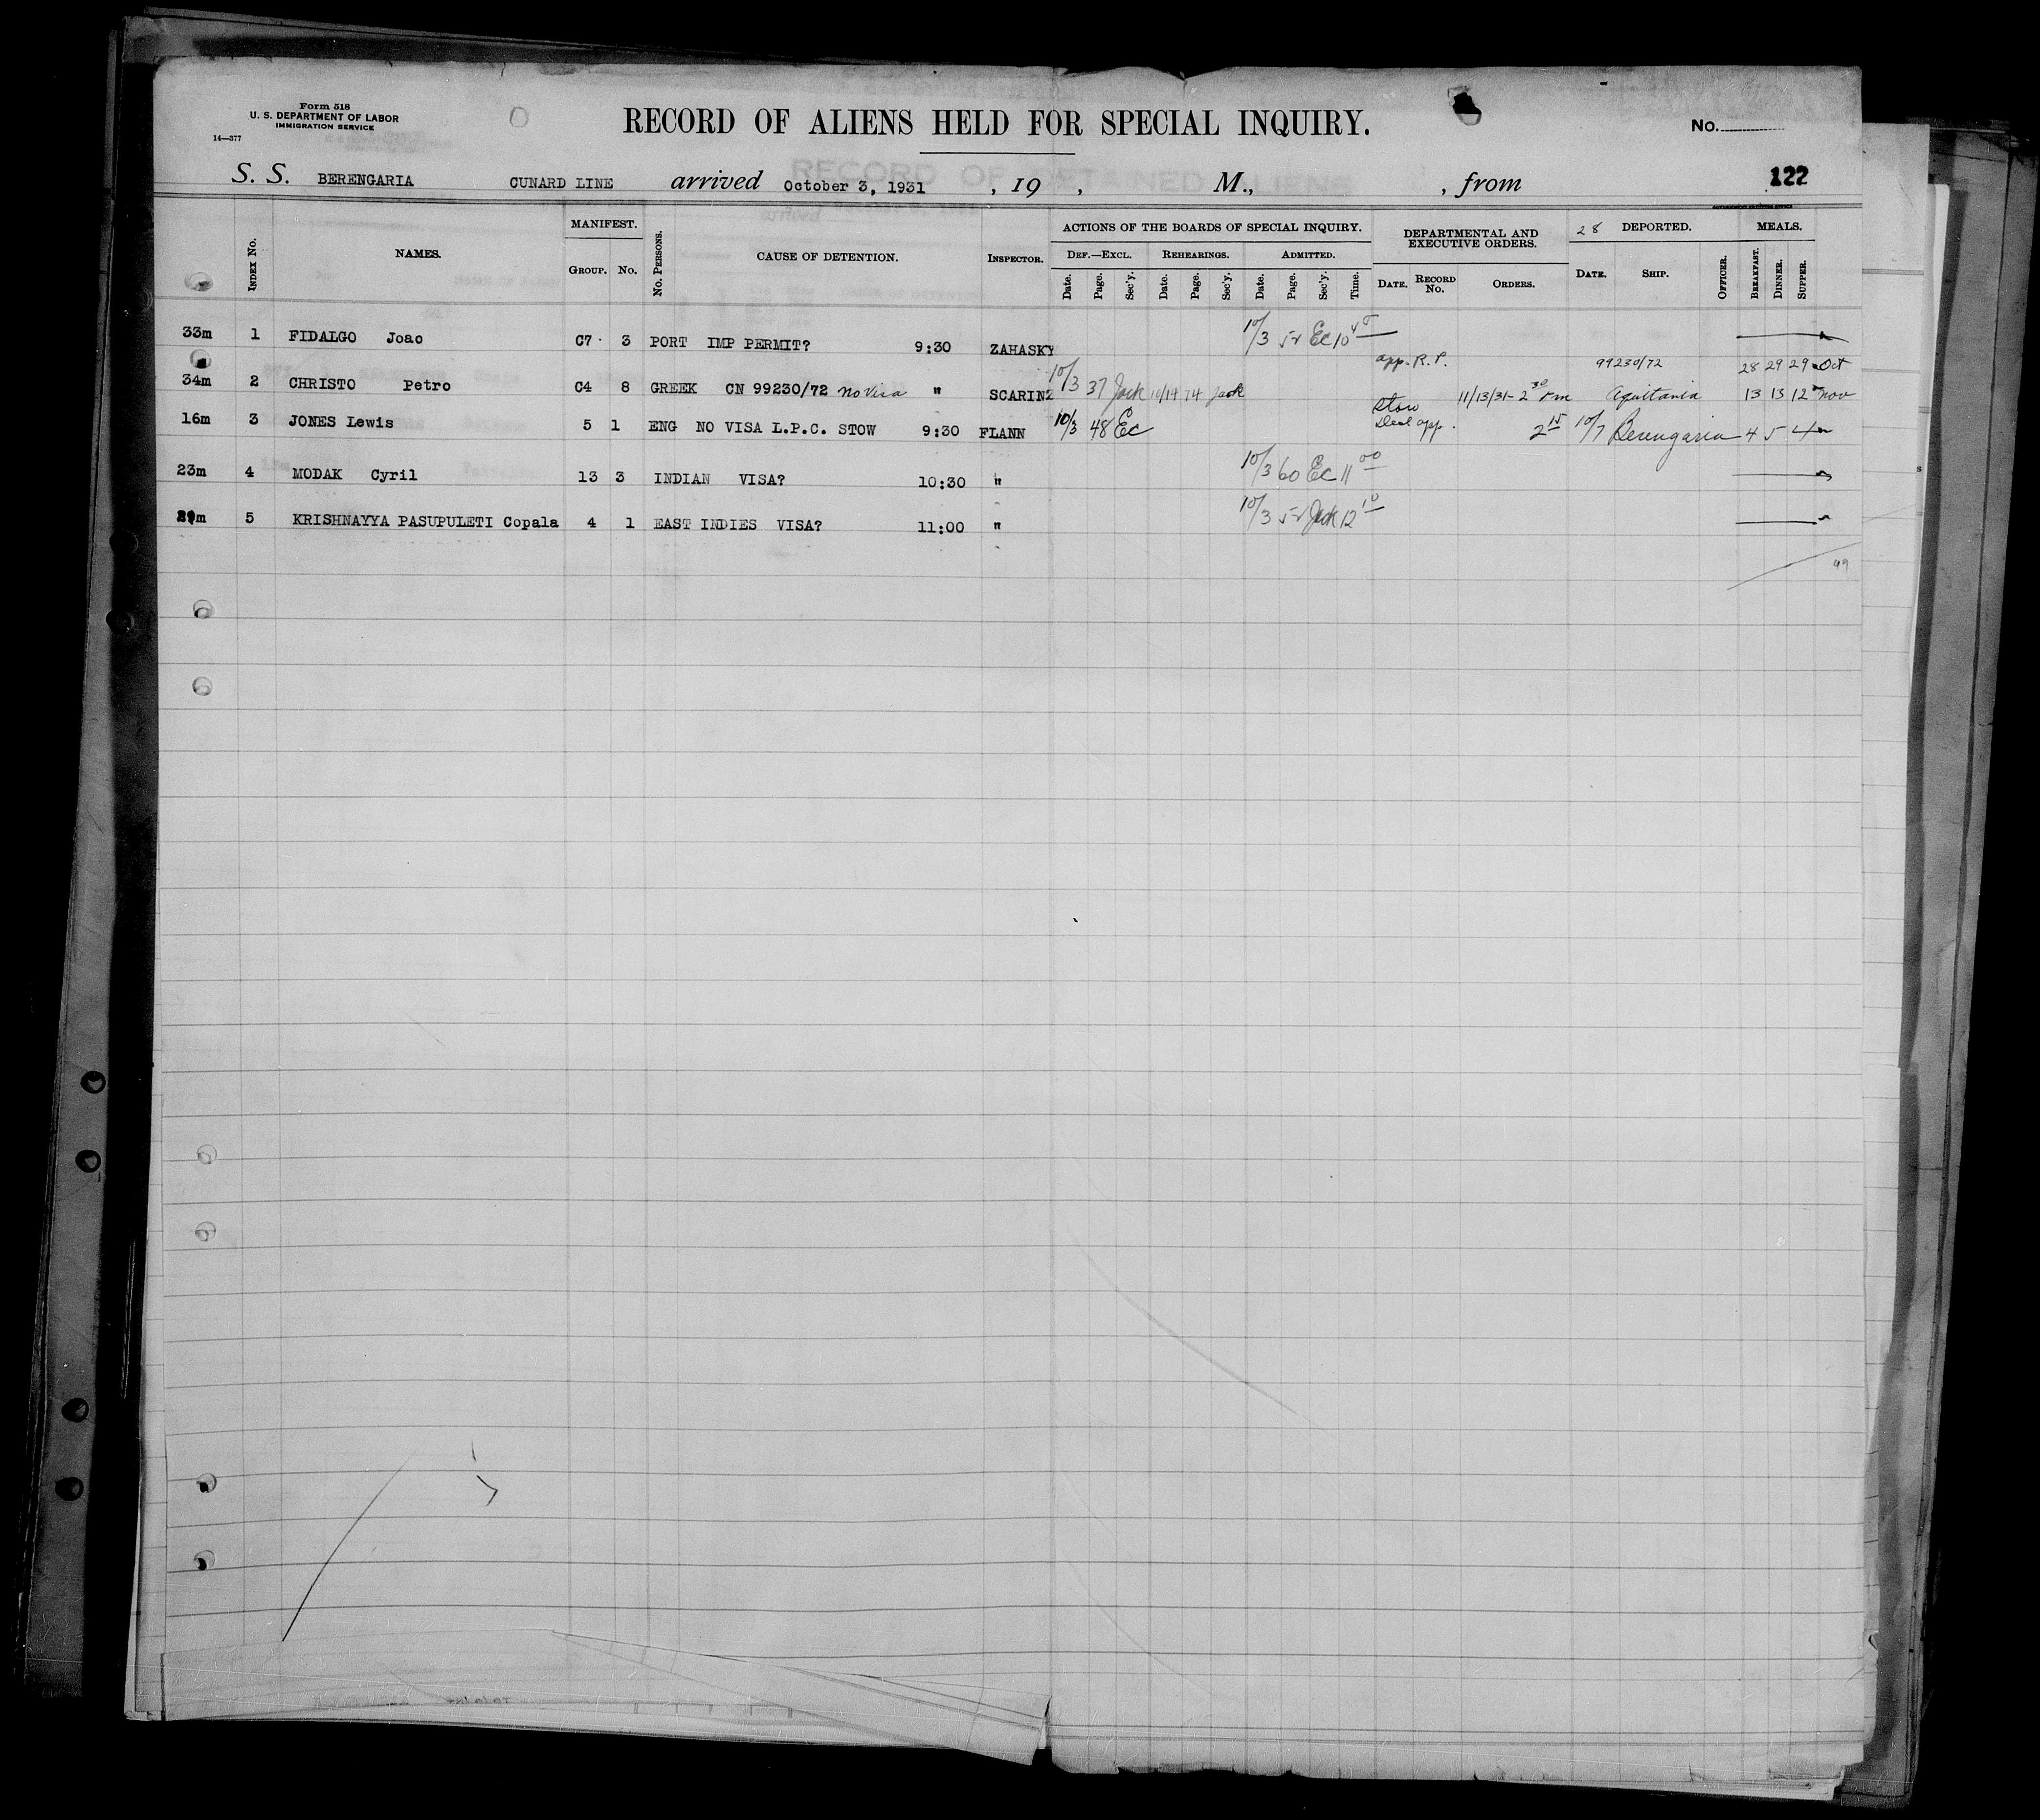 Form 518
U. S. DEPARTMENT OF LABOR
IMMIGRATION SERVICE
14—377
RECORD OF ALIENS HELD FOR SPECIAL INQUIRY.
No.
S. S. BERENGARIA CUNARD LINE arrived October 3, 1931 , 19 , M., , from 122
INDEX No. NAMES. MANIFEST. GROUP. No. No. PERSONS. CAUSE OF DETENTION. INSPECTOR. ACTIONS OF THE BOARDS OF SPECIAL INQUIRY. DEPARTMENTAL AND EXECUTIVE ORDERS. 28 DEPORTED. MEALS.
DEF.—EXCL. REHEARINGS. ADMITTED.
Date. Page. Sec'y. Date. Page. Sec'y. Date. Page. Sec'y. Time. DATE. RECORD No. ORDERS. DATE. SHIP. OFFICER. BREAKFAST. DINNER. SUPPER.
33m 1 FIDALGO Joao C7 3 PORT IMP PERMIT? 9:30 ZAHASKY 10/3 52 Ec 10 45
app. R. P. 99230/72 28 29 29 Oct
34m 2 CHRISTO Petro C4 8 GREEK CN 99230/72 no visa " SCARINZ 10/3 37 Jack 10/14 74 Jack 11/13/31- 2 30 Pm Aquitania 13 13 12 nov
Stow
16m 3 JONES Lewis 5 1 ENG NO VISA L.P.C. STOW 9:30 FLANN 10/3 48 Ec Decl app. 2 15 10/7 Berengaria 4 5 4
23m 4 MODAK Cyril 13 3 INDIAN VISA? 10:30 " 10/3 60 Ec 11 00
29m 5 KRISHNAYYA PASUPULETI Copala 4 1 EAST INDIES VISA? 11:00 " 10/3 52 Jack 12 10
49